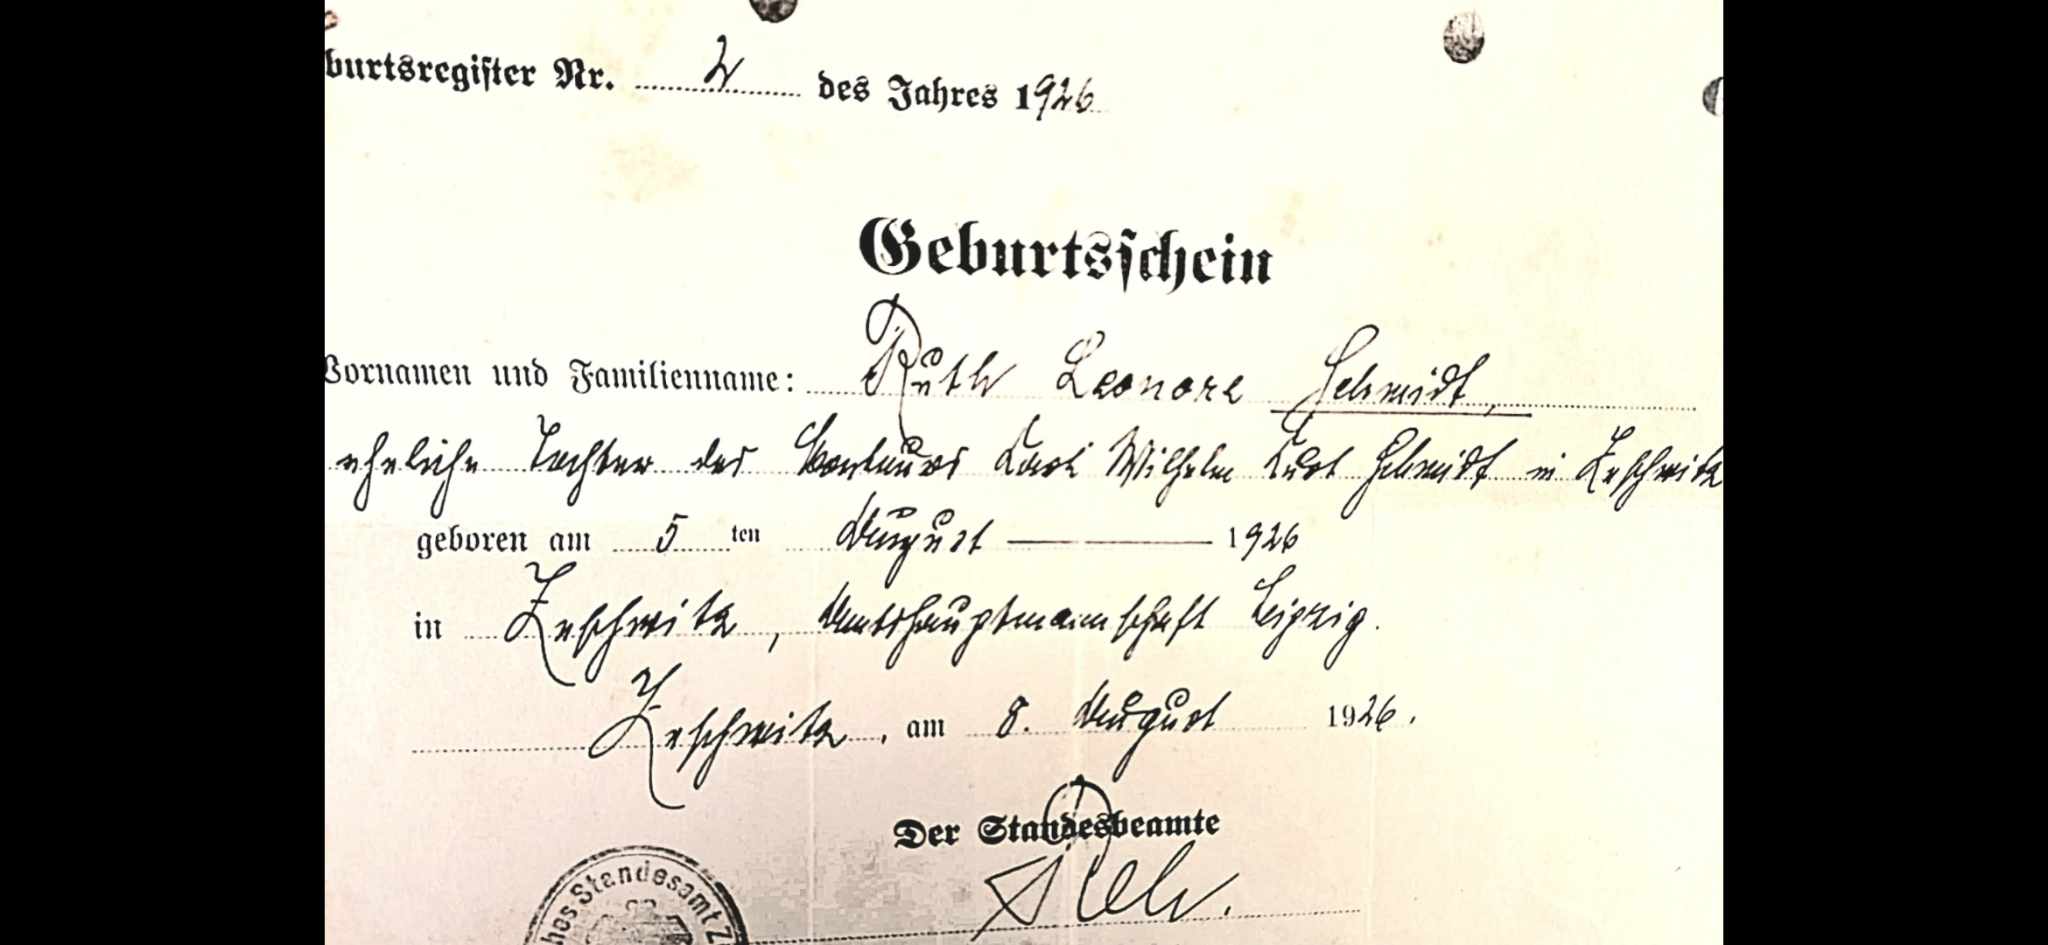 burtsregister Nr. 2 des Jahres 1926
Geburtsschein
Vornamen und Familienname: Ruth Leonore Schmidt,
eheliche Tochter des Kurt Schmidt in Zeschwitz
geboren am 5 ten August 1926
in Zeschwitz, Amtshauptmannschaft Leipzig.
Zeschwitz, am 8. August 1926.
Der Standesbeamte
hes Standesamt Z